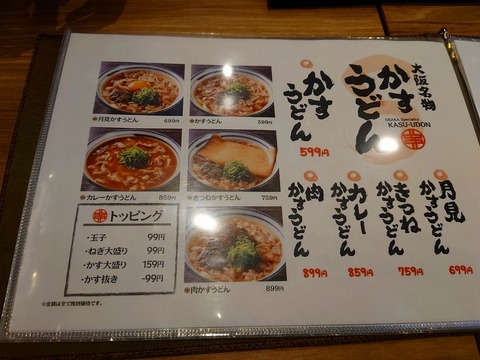 大阪名物
かすうどん
OSAKA Specialty
KASU-UDON
かすうどん
599円
月見かすうどん
699円
きつねかすうどん
759円
カレーかすうどん
859円
肉かすうどん
899円
月見かすうどん 699円
かすうどん 599円
カレーかすうどん 859円
きつねかすうどん 759円
肉かすうどん 899円
トッピング
・玉子 99円
・ねぎ大盛り 99円
・かす大盛り 159円
・かす抜き -99円
※金額は全て税別価格です。